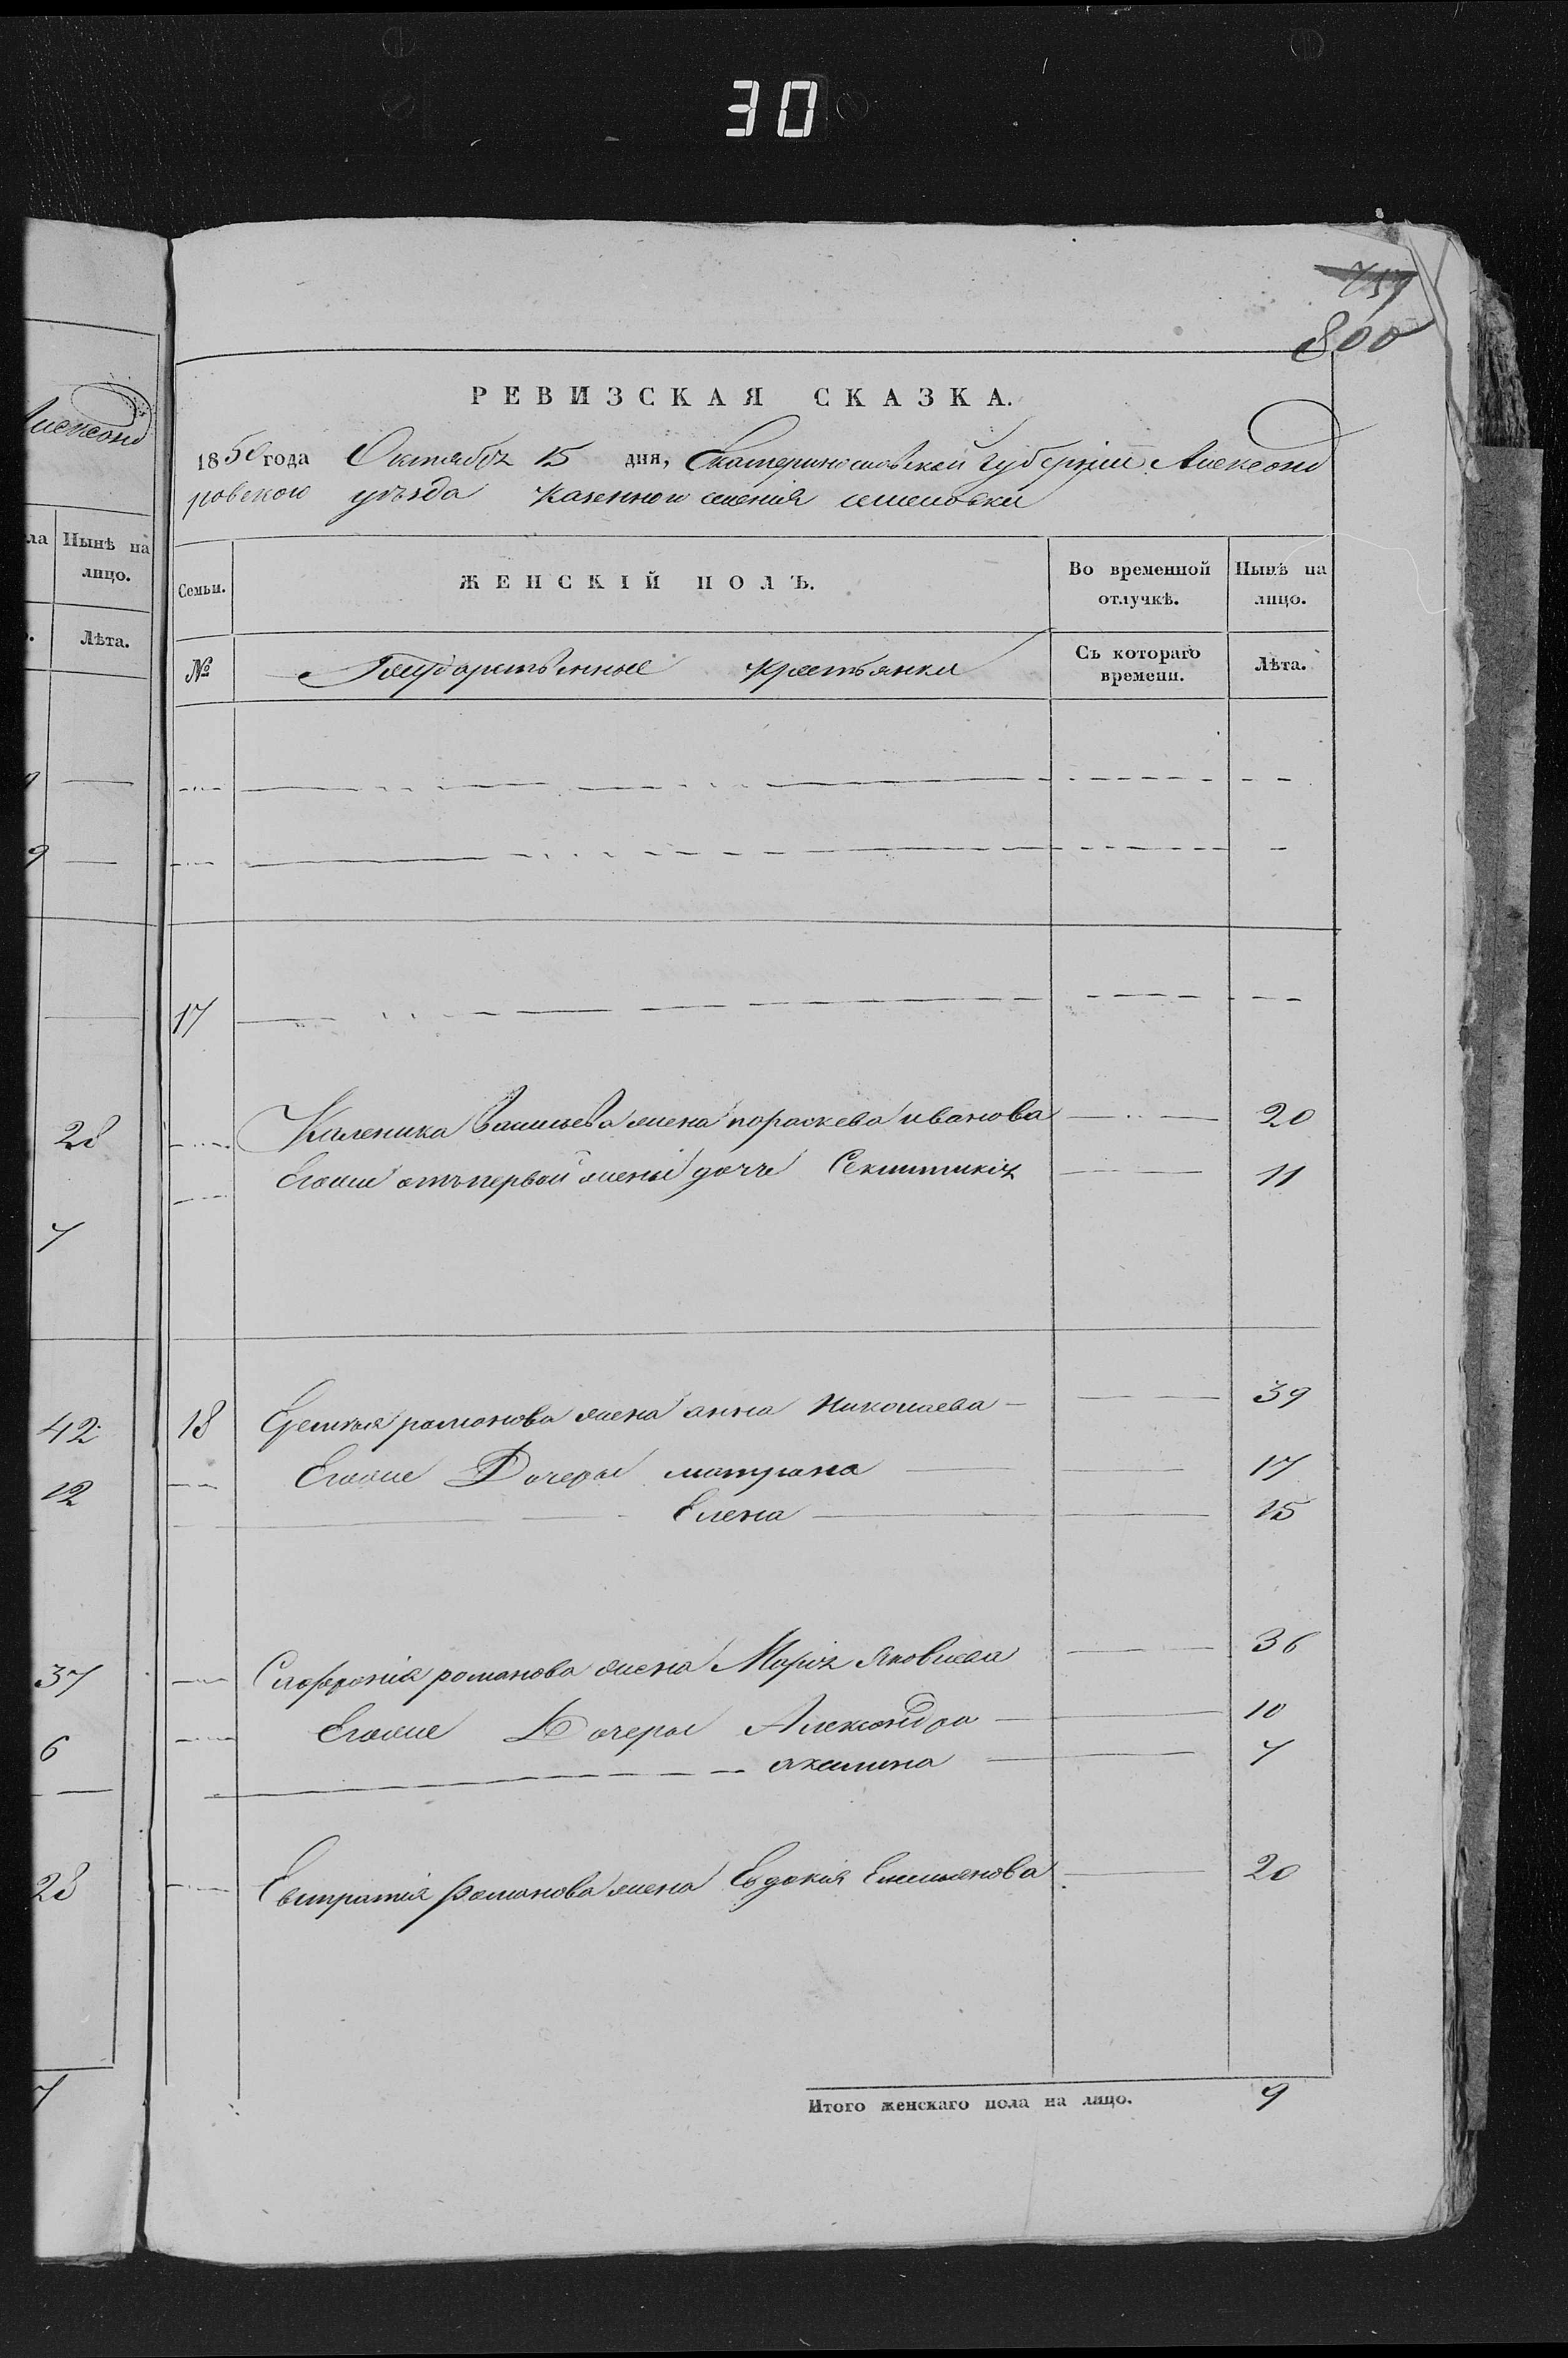 30
757
800
РЕВИЗСКАЯ СКАЗКА.
1850 года Октября 15 дня, Екатеринославской Губерніи Александ
ровскои уѣзда казеннои селенія семеновки
Семьи. ЖЕНСКІЙ ПОЛЪ. Во временной отлучкѣ. Нынѣ на лицо.
№ Государственные крестьянки Съ котораго времени. Лѣта.
17
Каленика Васильева жена пораскева иванова 20
Егоже отъ первой жены дочь 11
18 Еремѣя романова жена анна Николаева 39
Егоже Дочеры матрона 17
Елена 15
Софронія романова жена Марія Яковлева 36
Егоже Дочеры Александра 10
акилина 7
Евстратія Романова жена Евдокія Емельянова 20
Итого женскаго пола на лицо. 9
Александ
ла Нынѣ на
лицо.
Лѣта.
9
28
7
42
12
37
6
28
7